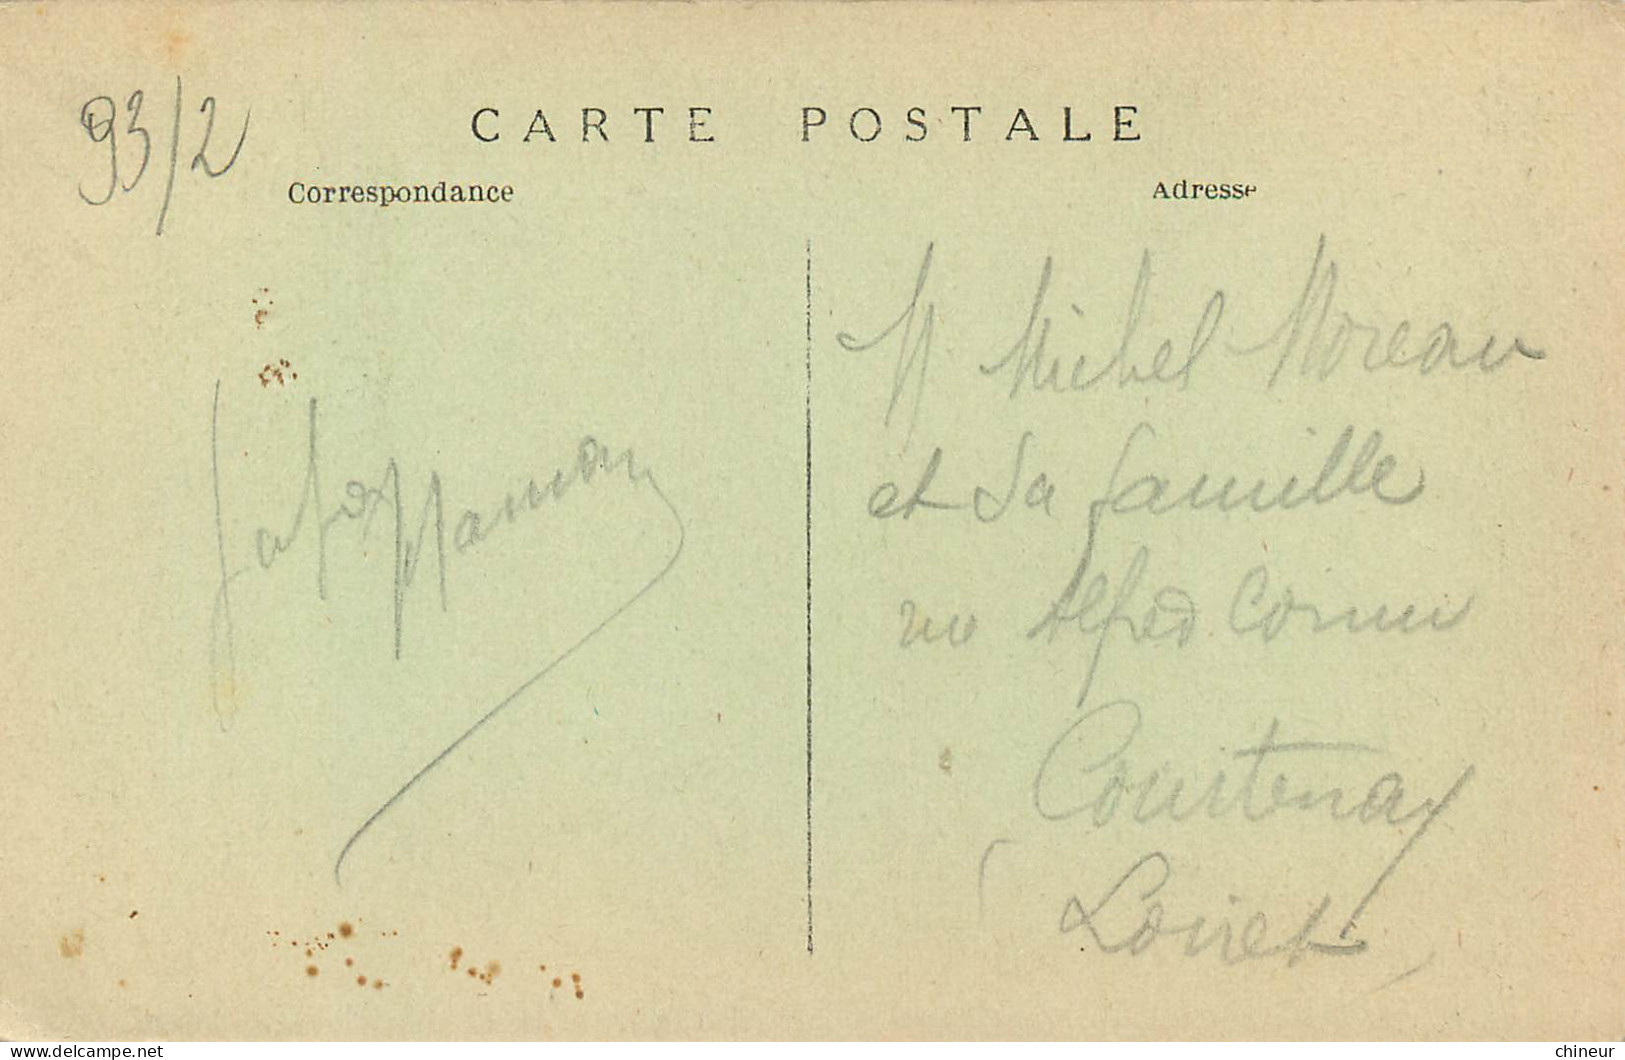 93/2
CARTE POSTALE
Correspondance
Adresse
M Michel Moreau
et sa famille
rue Alfred Cornu
Courtenay
(Loiret)
www.delcampe.net
chineur